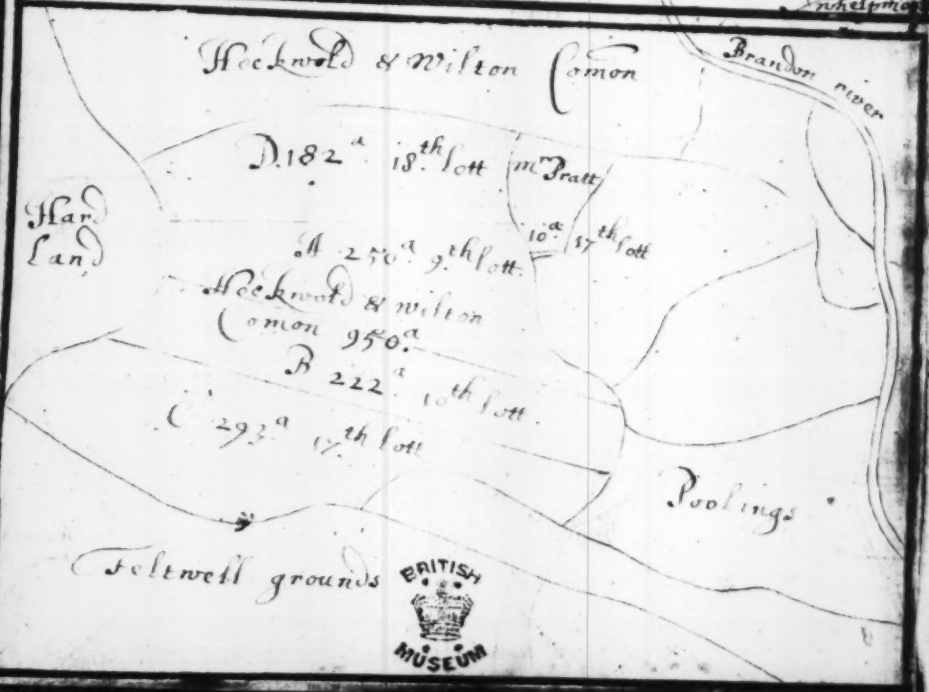 Hockwold & Wilton Comon
Brandon river
D. 182ᵃ 18ᵗʰ lott mʳ Pratt
Hard
Land
10ᵃ 17ᵗʰ lott
A 250ᵃ 9ᵗʰ lott.
Hockwold & wilton
Comon 950ᵃ
B 222ᵃ 10ᵗʰ lott.
C 293ᵃ 17ᵗʰ lott
Poolings
Feltwell grounds
BRITISH
MUSEUM